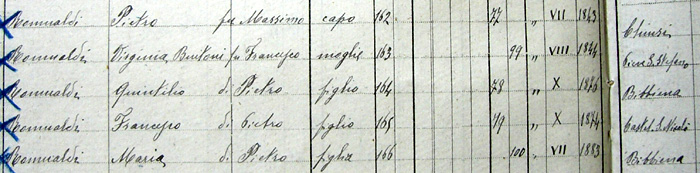 Romualdi Pietro fu Massimo capo 162 77 " VII 1843 Chiusi
Romualdi Virginia Buitoni fu Francesco moglie 163 99 " VIII 1844 Pieve S. Stefano
Romualdi Quintilio di Pietro figlio 164 78 " X 1876 Bibbiena
Romualdi Francesco di Pietro figlio 165 79 " X 1874 Castel S. Nicolò
Romualdi Maria di Pietro figlia 166 100 " VII 1883 Bibbiena